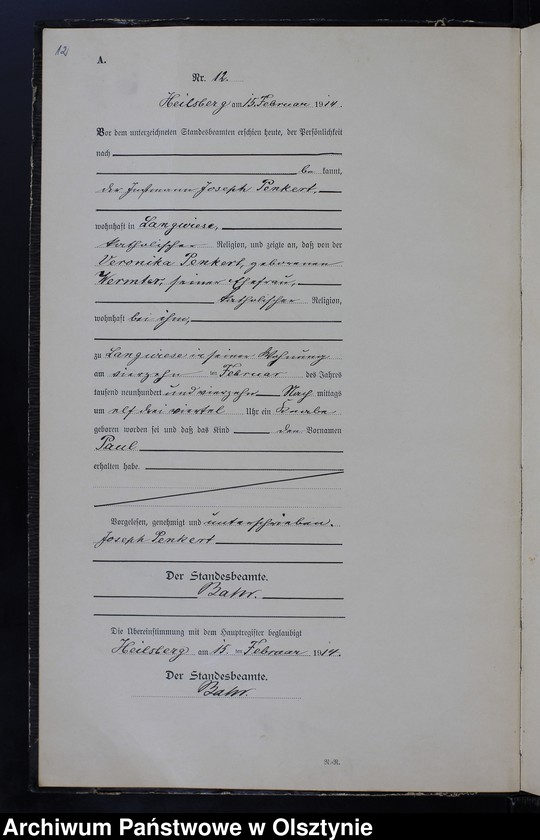 12
A.
Nr. 12.
Heilsberg am 15. Februar 1914.
Vor dem unterzeichneten Standesbeamten erschien heute, der Persönlichkeit
nach
be kannt,
der Instmann Joseph Penkert,
wohnhaft in Langwiese,
katholischer Religion, und zeigte an, daß von der
Veronika Penkert, geborenen
Wermter, seiner Ehefrau,
katholischer Religion,
wohnhaft bei ihm,
zu Langwiese in seiner Wohnung
am vierzehn ten Februar des Jahres
tausend neunhundert und vierzehn Nach mittags
um elf drei viertel Uhr ein Knabe
geboren worden sei und daß das Kind den Vornamen
Paul
erhalten habe.
Vorgelesen, genehmigt und unterschrieben.
Joseph Penkert
Der Standesbeamte.
Bahr.
Die Übereinstimmung mit dem Hauptregister beglaubigt
Heilsberg am 15. ten Februar 1914.
Der Standesbeamte.
Bahr.
R.-R.
Archiwum Państwowe w Olsztynie